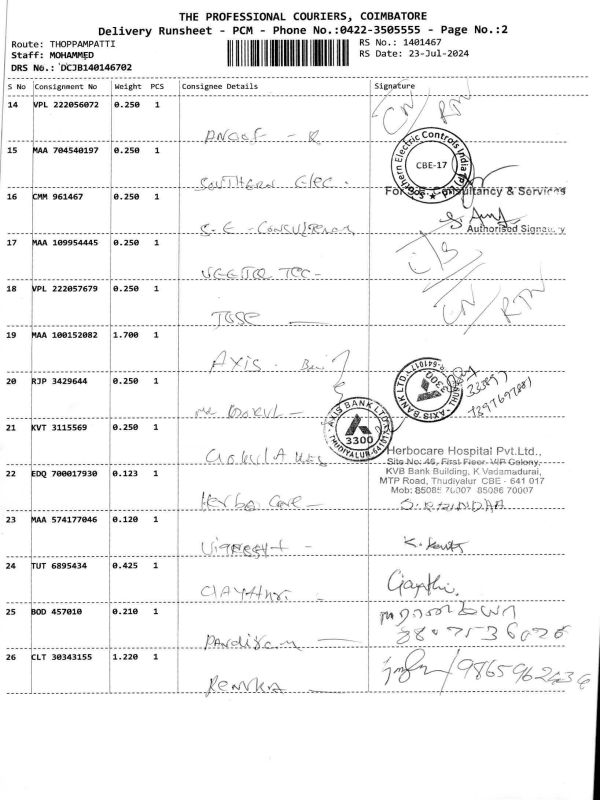 THE PROFESSIONAL COURIERS, COIMBATORE
Delivery Runsheet - PCM - Phone No.:0422-3505555 - Page No.:2
Route: THOPPAMPATTI
RS No.: 1401467
Staff: MOHAMMED
RS Date: 23-Jul-2024
DRS No.: DCJB140146702
S No Consignment No Weight PCS Consignee Details Signature
14 VPL 222056072 0.250 1
CN RTN
15 MAA 704540197 0.250 1
SOUTHERN Elec.
Southern Electric Controls India (P) Ltd
CBE-17
16 CMM 961467 0.250 1
S.E - Consultancy
For S.E. Consultancy & Services
Authorised Signatory
17 MAA 109954445 0.250 1
18 VPL 222057679 0.250 1
JOSE
CN RTN
19 MAA 100152082 1.700 1
AXIS
20 RJP 3429644 0.250 1
AXIS BANK LTD
3300
21 KVT 3115569 0.250 1
AXIS BANK LTD
3300
THUDIYALUR-641017
22 EDQ 700017930 0.123 1
Herba Care
Herbocare Hospital Pvt.Ltd.,
Site No: 46, First Floor, VIP Colony,
KVB Bank Building, K.Vadamadurai,
MTP Road, Thudiyalur CBE - 641 017
Mob: 85085 70007 85086 70007
23 MAA 574177046 0.120 1
24 TUT 6895434 0.425 1
GAYTHRI
Gayathri.
25 BOD 457010 0.210 1
Pandiyan
26 CLT 30343155 1.220 1
Renuka